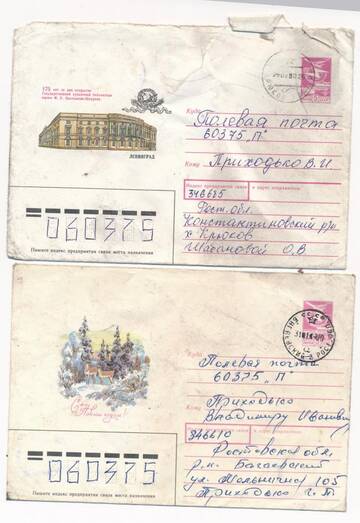 175 лет со дня открытия
Государственной публичной библиотеки
имени М. Е. Салтыкова-Щедрина
ЛЕНИНГРАД
Куда Полевая почта
60375 "П"
Кому Приходько В. И
Индекс предприятия связи и адрес отправителя
346685
Рост. обл.
Константиновский р/н
х. Крюков
О. В.
060375
Пишите индекс предприятия связи места назначения
С Новым годом!
Куда Полевая почта
60375 "П"
Кому Приходько
Владимиру Ивановичу
346610
Ростовская обл
р-н. Багаевский
ул. Мельничная 105
Приходько Г. П.
060375
Пишите индекс предприятия связи места назначения